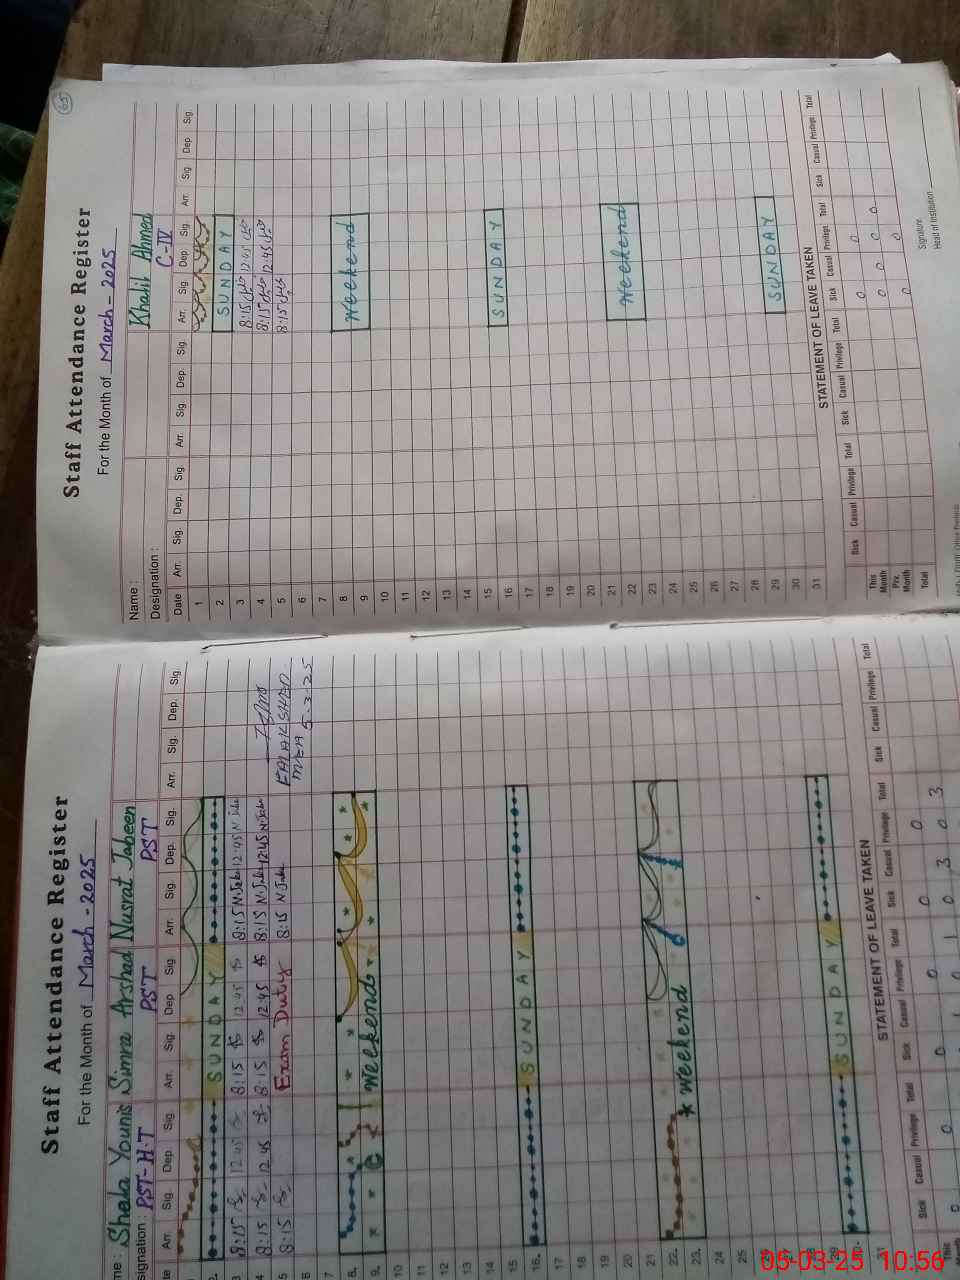 Staff Attendance Register
For the Month of March-2025
me: Shela Younis Simra Arshad Nusrat Jabeen
signation: PST-H.T PST PST
Arr. Sig. Dep. Sig. Arr. Sig. Dep. Sig. Arr. Sig. Dep. Sig. Arr. Sig. Dep. Sig.
2. SUNDAY
3 8:15 12.45 8:15 12.45 8:15 N.Jabe 12.45 N.Jabe
4 8:15 12.45 8:15 12.45 8:15 N.Jabe 12.45 N.Jabe
5 8:15 Exam Duty 8:15 N.Jabe
6 5.3.25
7
8.
9. Weekend
10
11
12
13
14
15
16. SUNDAY
17
18
19
20
21
22. Weekend
23.
24
25
26
27
28
29 SUNDAY
30.
31
STATEMENT OF LEAVE TAKEN
Sick Casual Privilege Total Sick Casual Privilege Total Sick Casual Privilege Total Sick Casual Privilege Total
This
65
Staff Attendance Register
For the Month of March-2025
Name: Khalil Ahmed
Designation: C-IV
Date Arr. Sig. Dep. Sig. Arr. Sig. Dep. Sig. Arr. Sig. Dep Sig. Arr. Sig. Dep Sig.
1
2 SUNDAY
3 8:15 12:45
4 8:15 12:45
5 8:15
6
7
8 Weekend
9
10
11
12
13
14
15 SUNDAY
16
17
18
19
20
21 Weekend
22
23
24
25
26
27
28 SUNDAY
29
30
31
STATEMENT OF LEAVE TAKEN
Sick Casual Privilege Total Sick Casual Privilege Total Sick Casual Privilege Total Sick Casual Privilege Total
This Month 0 0
Prv. Month 0 0 0 0
Total 0 0
Signature
Head of Institution
05-03-25 10:56